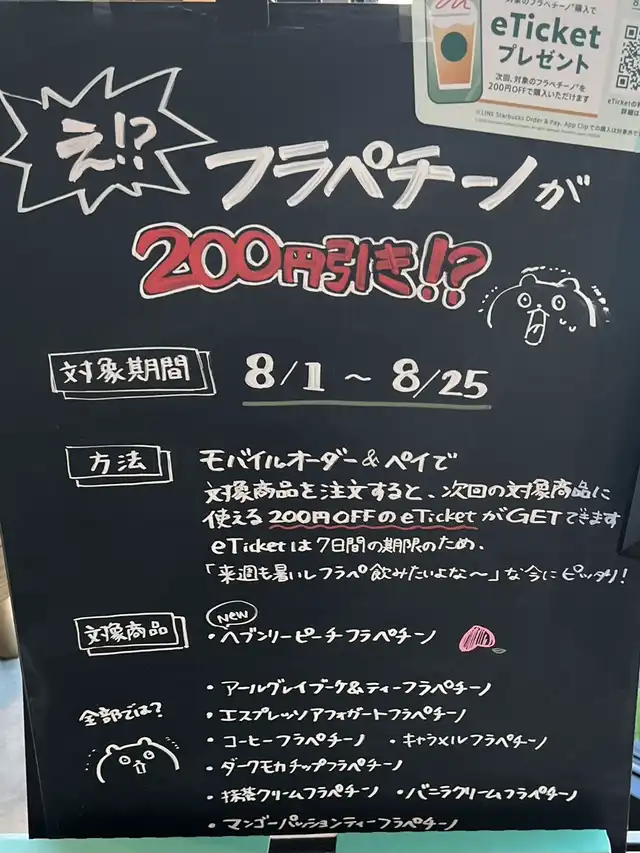 対象のフラペチーノ®購入で
eTicket
プレゼント
次回、対象のフラペチーノ®を
200円OFFで購入いただけます
eTicketの
詳細は
え!?
フラペチーノが
200円引き!?
対象期間 8/1 ~ 8/25
方法 モバイルオーダー&ペイで
対象商品を注文すると、次回の対象商品に
使える200円OFFのeTicketがGETできます
eTicketは7日間の期限のため、
「来週も暑いしフラペ飲みたいよな〜」な今にピッタリ!
new
対象商品 ・ヘブンリーピーチフラペチーノ
・アールグレイブーケ&ティーフラペチーノ
全部では? ・エスプレッソアフォガートフラペチーノ
・コーヒーフラペチーノ ・キャラメルフラペチーノ
・ダークモカチップフラペチーノ
・抹茶クリームフラペチーノ ・バニラクリームフラペチーノ
・マンゴーパッションティーフラペチーノ